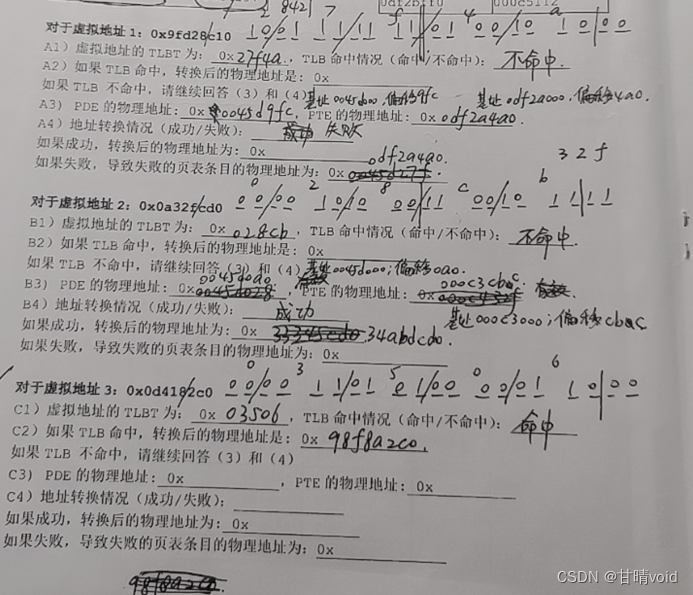 2 8421 7
0df2bff0 000c5112
对于虚拟地址 1: 0x9fd28c10 1001 1111 1101 0010 1000
A1) 虚拟地址的 TLBT 为: 0x 27f4a, TLB 命中情况(命中/不命中): 不命中.
A2) 如果 TLB 命中, 转换后的物理地址是: 0x
如果 TLB 不命中, 请继续回答 (3) 和 (4) 基址 0045d000. 偏移9fc 基址 0df2a000. 偏移4a0.
A3) PDE 的物理地址: 0x 0045d9fc, PTE 的物理地址: 0x 0df2a4a0.
A4) 地址转换情况(成功/失败): 失败
如果成功, 转换后的物理地址为: 0x
如果失败, 导致失败的页表条目的物理地址为: 0x 0df2a4a0.
3 2 f
对于虚拟地址 2: 0x0a32fcd0 0000 1010 0011 0010 1111
B1) 虚拟地址的 TLBT 为: 0x 028cb, TLB 命中情况(命中/不命中): 不命中.
B2) 如果 TLB 命中, 转换后的物理地址是: 0x
如果 TLB 不命中, 请继续回答 (3) 和 (4) 基址0045d000; 偏移0a0.
B3) PDE 的物理地址: 0x 0045d0a0, PTE 的物理地址: 0x 000c3cbc.
B4) 地址转换情况(成功/失败): 成功 基址 000c3000; 偏移cbc
如果成功, 转换后的物理地址为: 0x 34abdcd0.
如果失败, 导致失败的页表条目的物理地址为: 0x
对于虚拟地址 3: 0x0d4182c0 0000 1101 0100 0001 1000
C1) 虚拟地址的 TLBT 为: 0x 03506, TLB 命中情况(命中/不命中): 命中
C2) 如果 TLB 命中, 转换后的物理地址是: 0x 98f8a2c0.
如果 TLB 不命中, 请继续回答 (3) 和 (4)
C3) PDE 的物理地址: 0x, PTE 的物理地址: 0x
C4) 地址转换情况(成功/失败):
如果成功, 转换后的物理地址为: 0x
如果失败, 导致失败的页表条目的物理地址为: 0x
98f8a2c0
CSDN @甘晴void